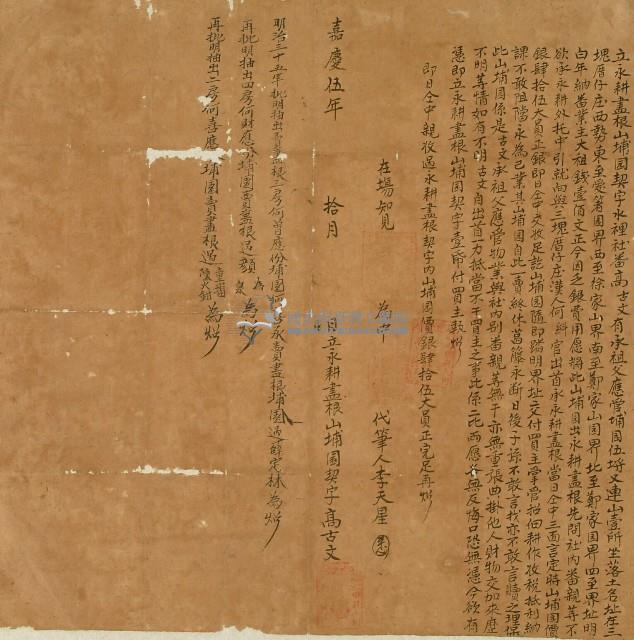 立永耕盡根山埔園契字水裡社番高古文有承祖父應管埔園伍坵又連山壹所坐落土名址在三
塊厝仔庄西勢東至愛箸園界西至徐家山界南至鄭家山園界北至鄭家園界四至界址明
白年納番業主大租錢壹佰文正今因乏銀費用愿將此山埔園出永耕盡根先問社內番親等不
欲承永耕外托中引就向與三塊厝仔庄漢人何 官出首承永耕盡根當日仝中三面言定時山埔園價
銀肆拾伍大員正銀即日仝中交收足訖山埔園隨即踏明界址交付買主掌管招佃耕作收稅抵利納
課不敢阻擋永為己業其山埔園自此一賣終休葛籐永斷日後子孫不敢言找亦不敢言贖之理保
此山埔園係是古文承祖父應管物業與社內別番親等無干亦無重張典掛他人財物交加來歷
不明等情如有不明古文自出首一力抵當不干買主之事此係二比兩愿各無反悔口恐無憑今欲有
憑即立永耕盡根山埔園契字壹 付買主執炤
即日仝中親收過永耕盡根契字內山埔園價銀肆拾伍大員正完足再炤
為中
在場知見
代筆人李天星
嘉慶伍年 拾月 日立永耕盡根山埔園契字高古文
明治三十五年批明抽出 三房何首應份埔園 永賣盡根埔園過 定林為炤
再批明抽出四房何財應份埔園賣盡根過 為炤
再批明抽出二房何喜應 埔園賣盡根過 為炤